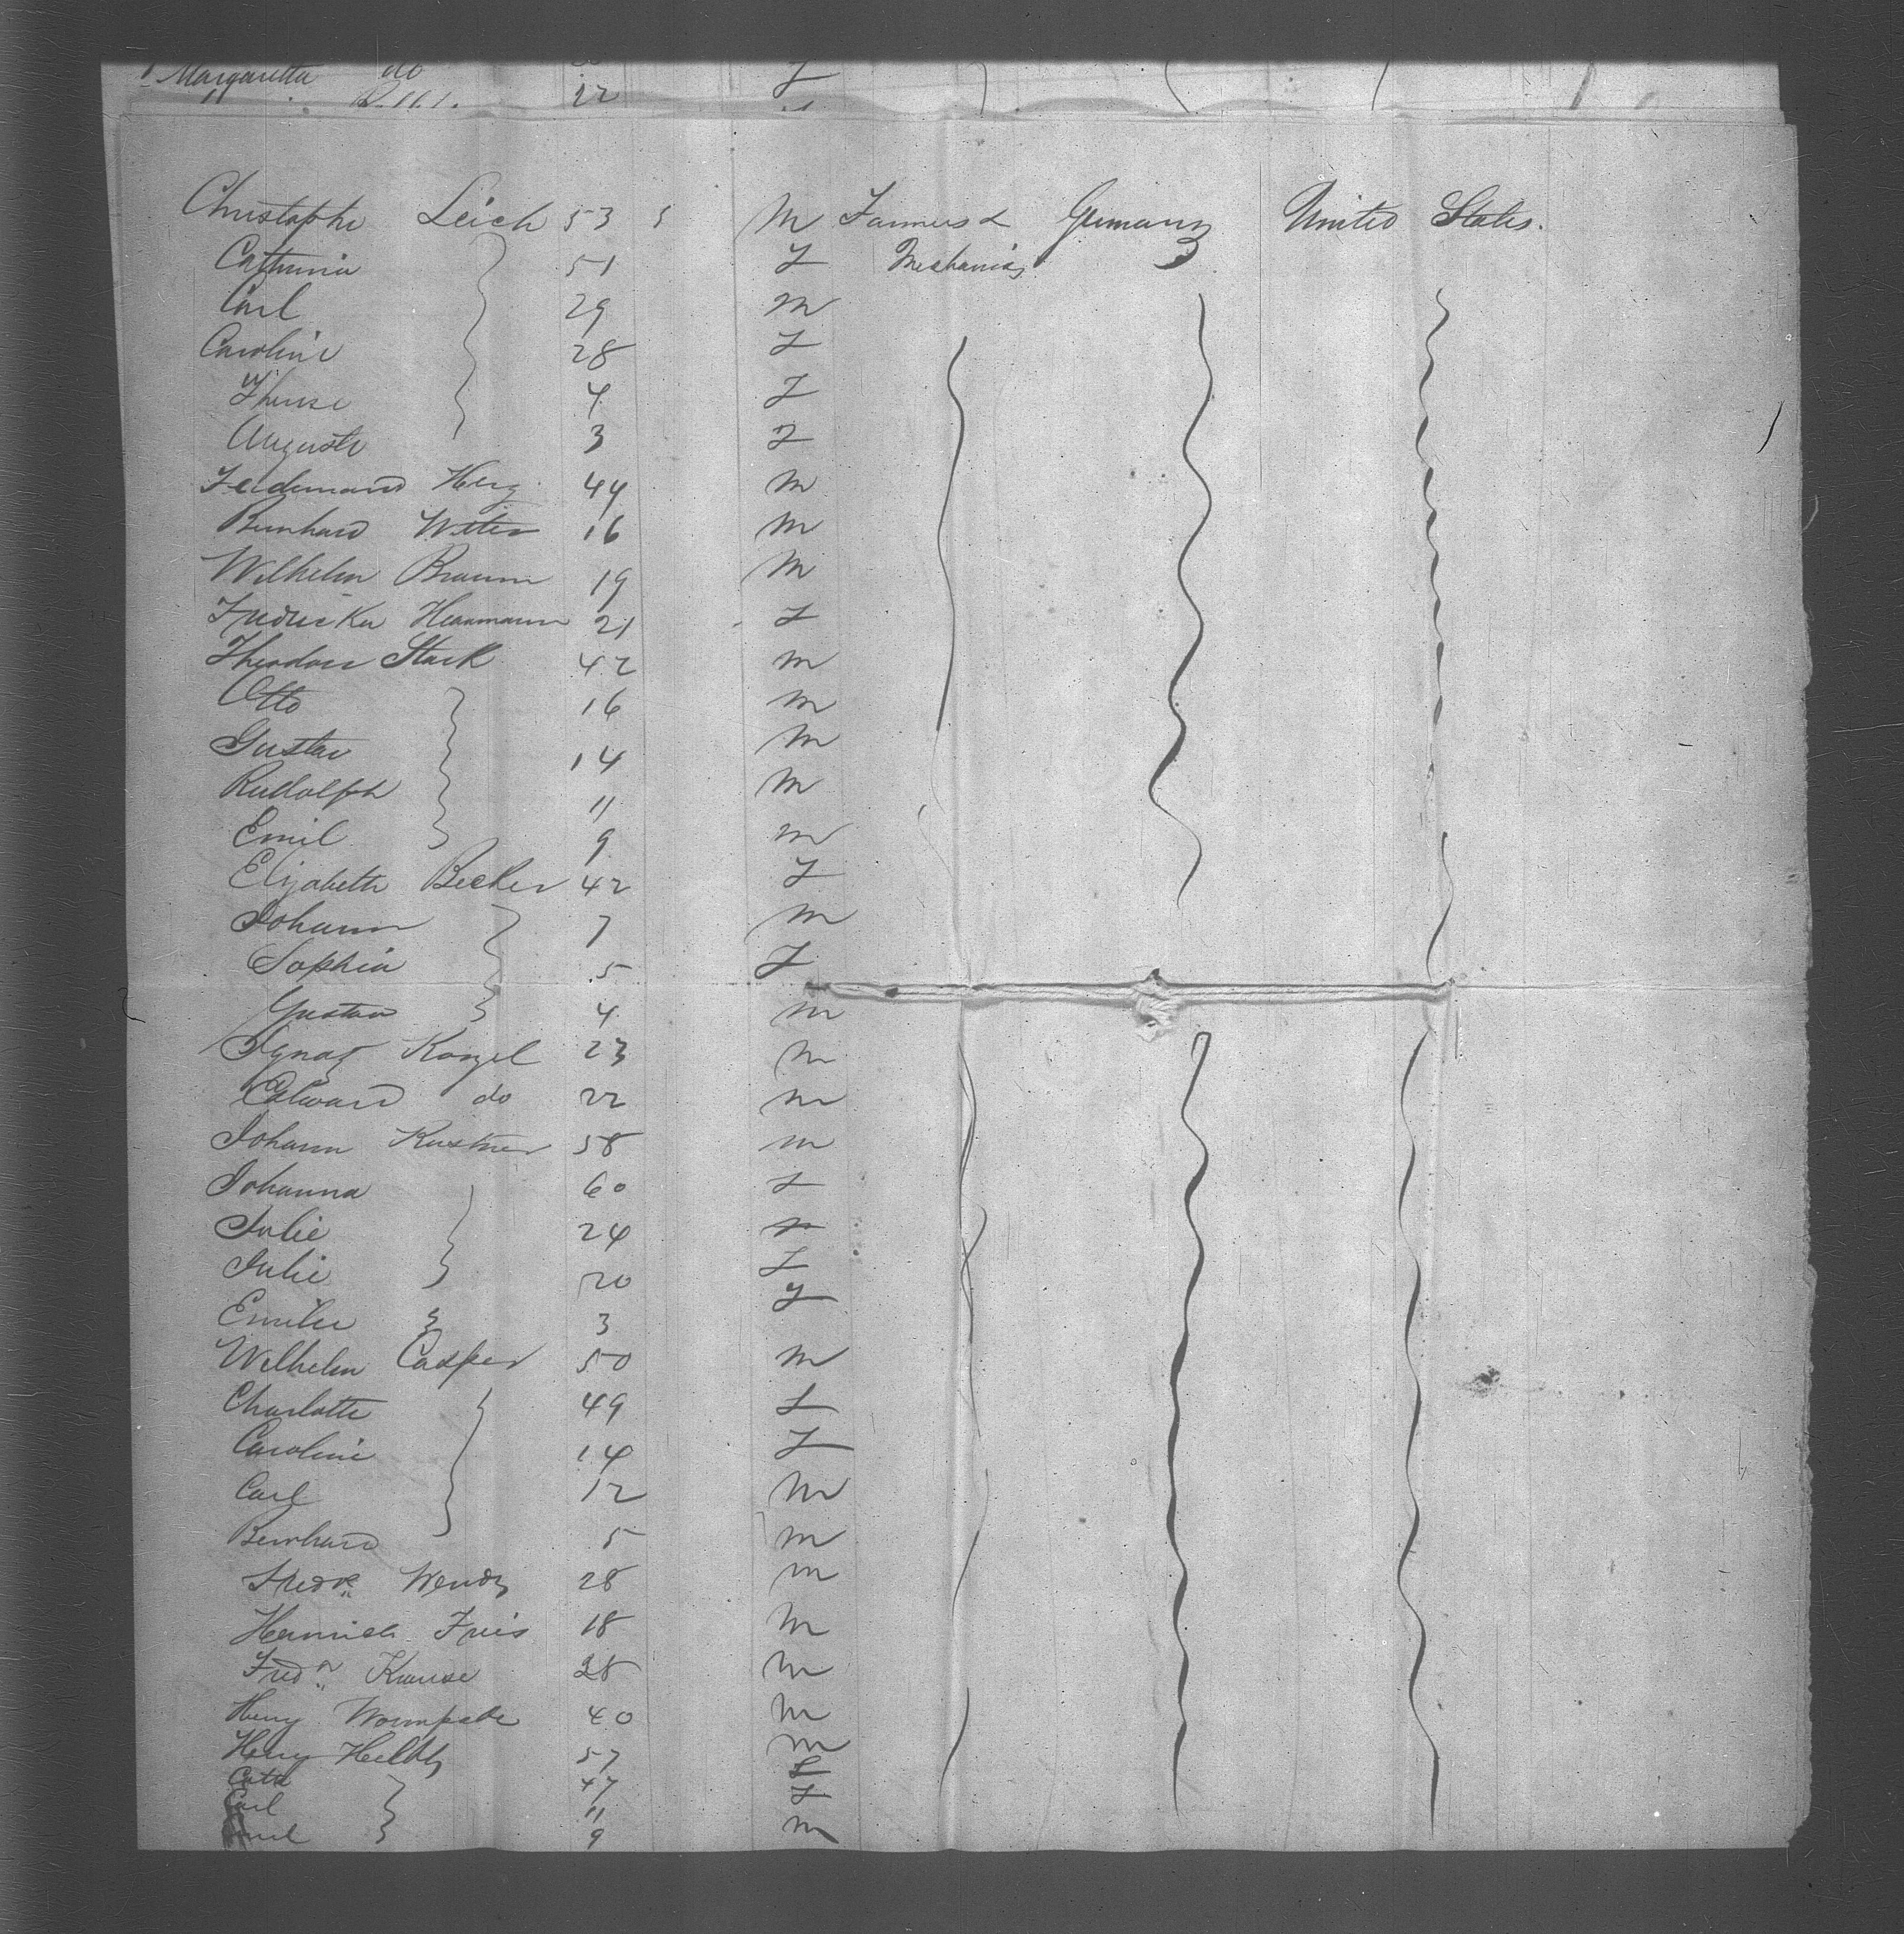 Margaretta do
22
Christophe Leich 53 M Farmers & Germany United States.
Cathrina 51 F Mechanics
Carl 29 M
Caroline 28 F
Therese 4 F
Auguste 3 F
Ferdinand Herz 44 M
Bernhard Witter 16 M
Wilhelm Braun 19 M
Fredricka Herrmann 21 F
Theodor Stark 42 M
Otto 16 M
Gustav 14 M
Rudolph 11 M
Emil 9 M
Elizabeth Becker 42 F
Johann 7 M
Sophia 5 F
Gustav 4 M
Ignaz Kongel 23 M
Edward do 22 M
Johann Kustner 58 M
Johanna 60 F
Julie 24
Julie 20 F
Emilie 3 F
Wilhelm Casper 50 M
Charlotte 49 F
Caroline 14 F
Carl 12 M
Bernhard 5 M
Fredk Wendz 28 M
Heinrich Freis 18 M
Fredk Krause 28 M
Henry 40 M
Henry 57 M
Cath 47 F
Carl 11 F
9 M